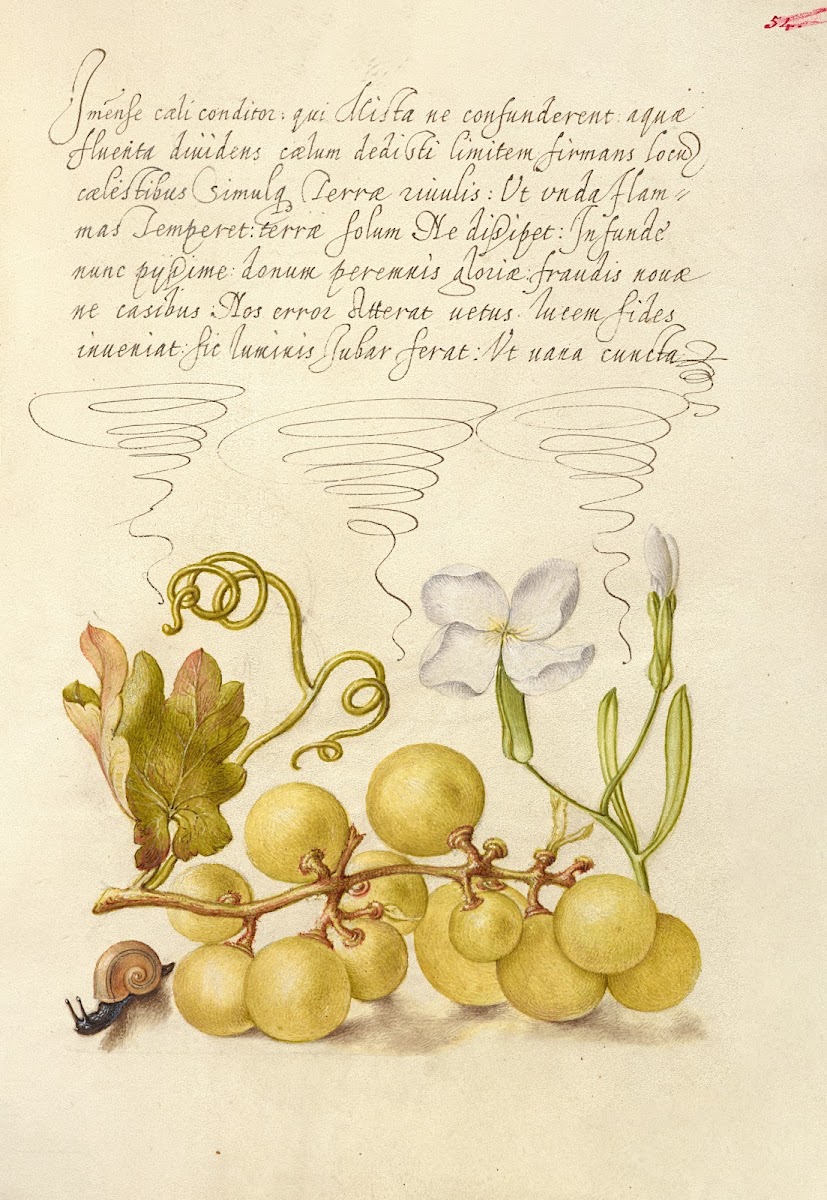 54.
Imense cæli conditor: qui Mista ne confunderent aquæ
fluenta diuidens cælum dedisti limitem firmans locū
cælestibus Simulq̃ Terræ riuulis: Ut vnda flam=
mas Temperet: terræ solum Ne dissipet: Infunde
nunc pyssime donum peremnis gloriæ: fraudis nouæ
ne casibus: Nos error Atterat uetus. lucem fides
inueniat: sic luminis Jubar ferat: Vt uana cuncta